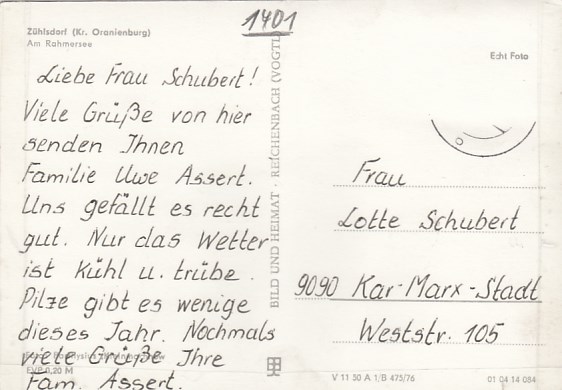 1401
Zühlsdorf (Kr. Oranienburg)
Am Rahmersee
Echt Foto
Liebe Frau Schubert!
Viele Grüße von hier
senden Ihnen
Familie Uwe Assert.
Uns gefällt es recht
gut. Nur das Wetter
ist Kühl u. trübe.
Pilze gibt es wenige
dieses Jahr. Nochmals
viele Grüße Ihre
Fam. Assert.
EVP 0,20 M
BILD UND HEIMAT · REICHENBACH (VOGTL)
Frau
Lotte Schubert
9090 Kar-Marx-Stadt
Weststr. 105
V 11 50 A 1/B 475/76
01 04 14 084